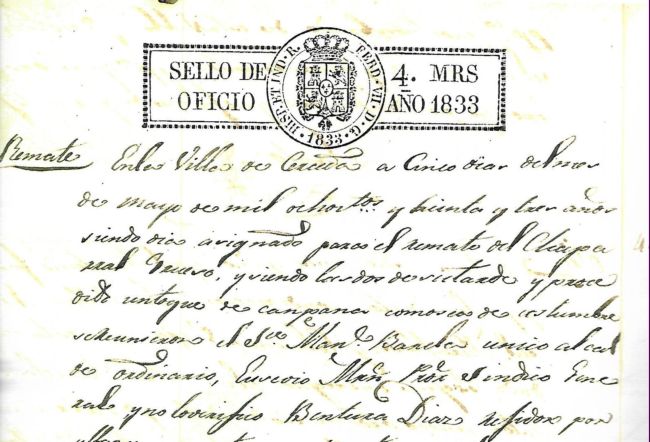 SELLO DE OFICIO
HISP. ET IND. R. FERD. VII. D. G. 1833.
4. MRS AÑO 1833
Remate
En la Villa de a Cinco dias del mes
de mayo de mil ochos.tos y treinta y tres años
siendo dia asignado para el remate del Chapa
rral Grueso, y siendo las dos de su tarde y prece
dido un toque de campana como es de costumbre
se reunieron el S.or Man.l unico alcal
de ordinario, Eusevio Mrñ Pror Sindico Gene
ral y no lo verifico Bentura Diaz rejidor por